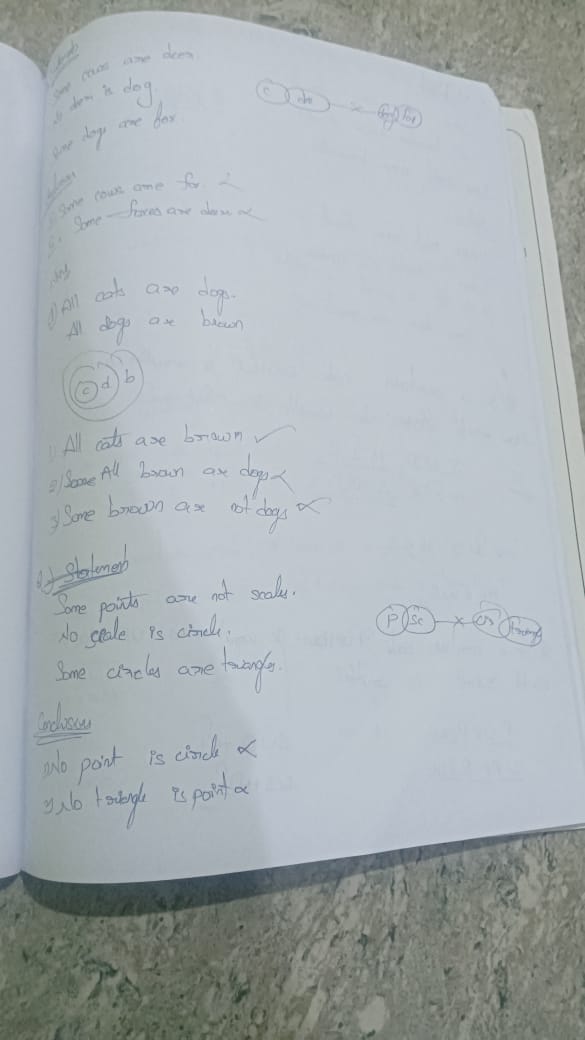 Some cows are deer
No deer is dog.
Some dogs are fox.
c de × dog fox
Some cows are fox
Some foxes are deer
1) All cats are dogs.
All dogs are brown
c d b
1) All cats are brown ✓
2) Some All brown are dogs
3) Some brown are not dogs
Statement
Some points are not scale.
No scale is circle.
P Sc × Cir triang
Some circles are triangles.
Conclusion
1) No point is circle
2) No triangle is point